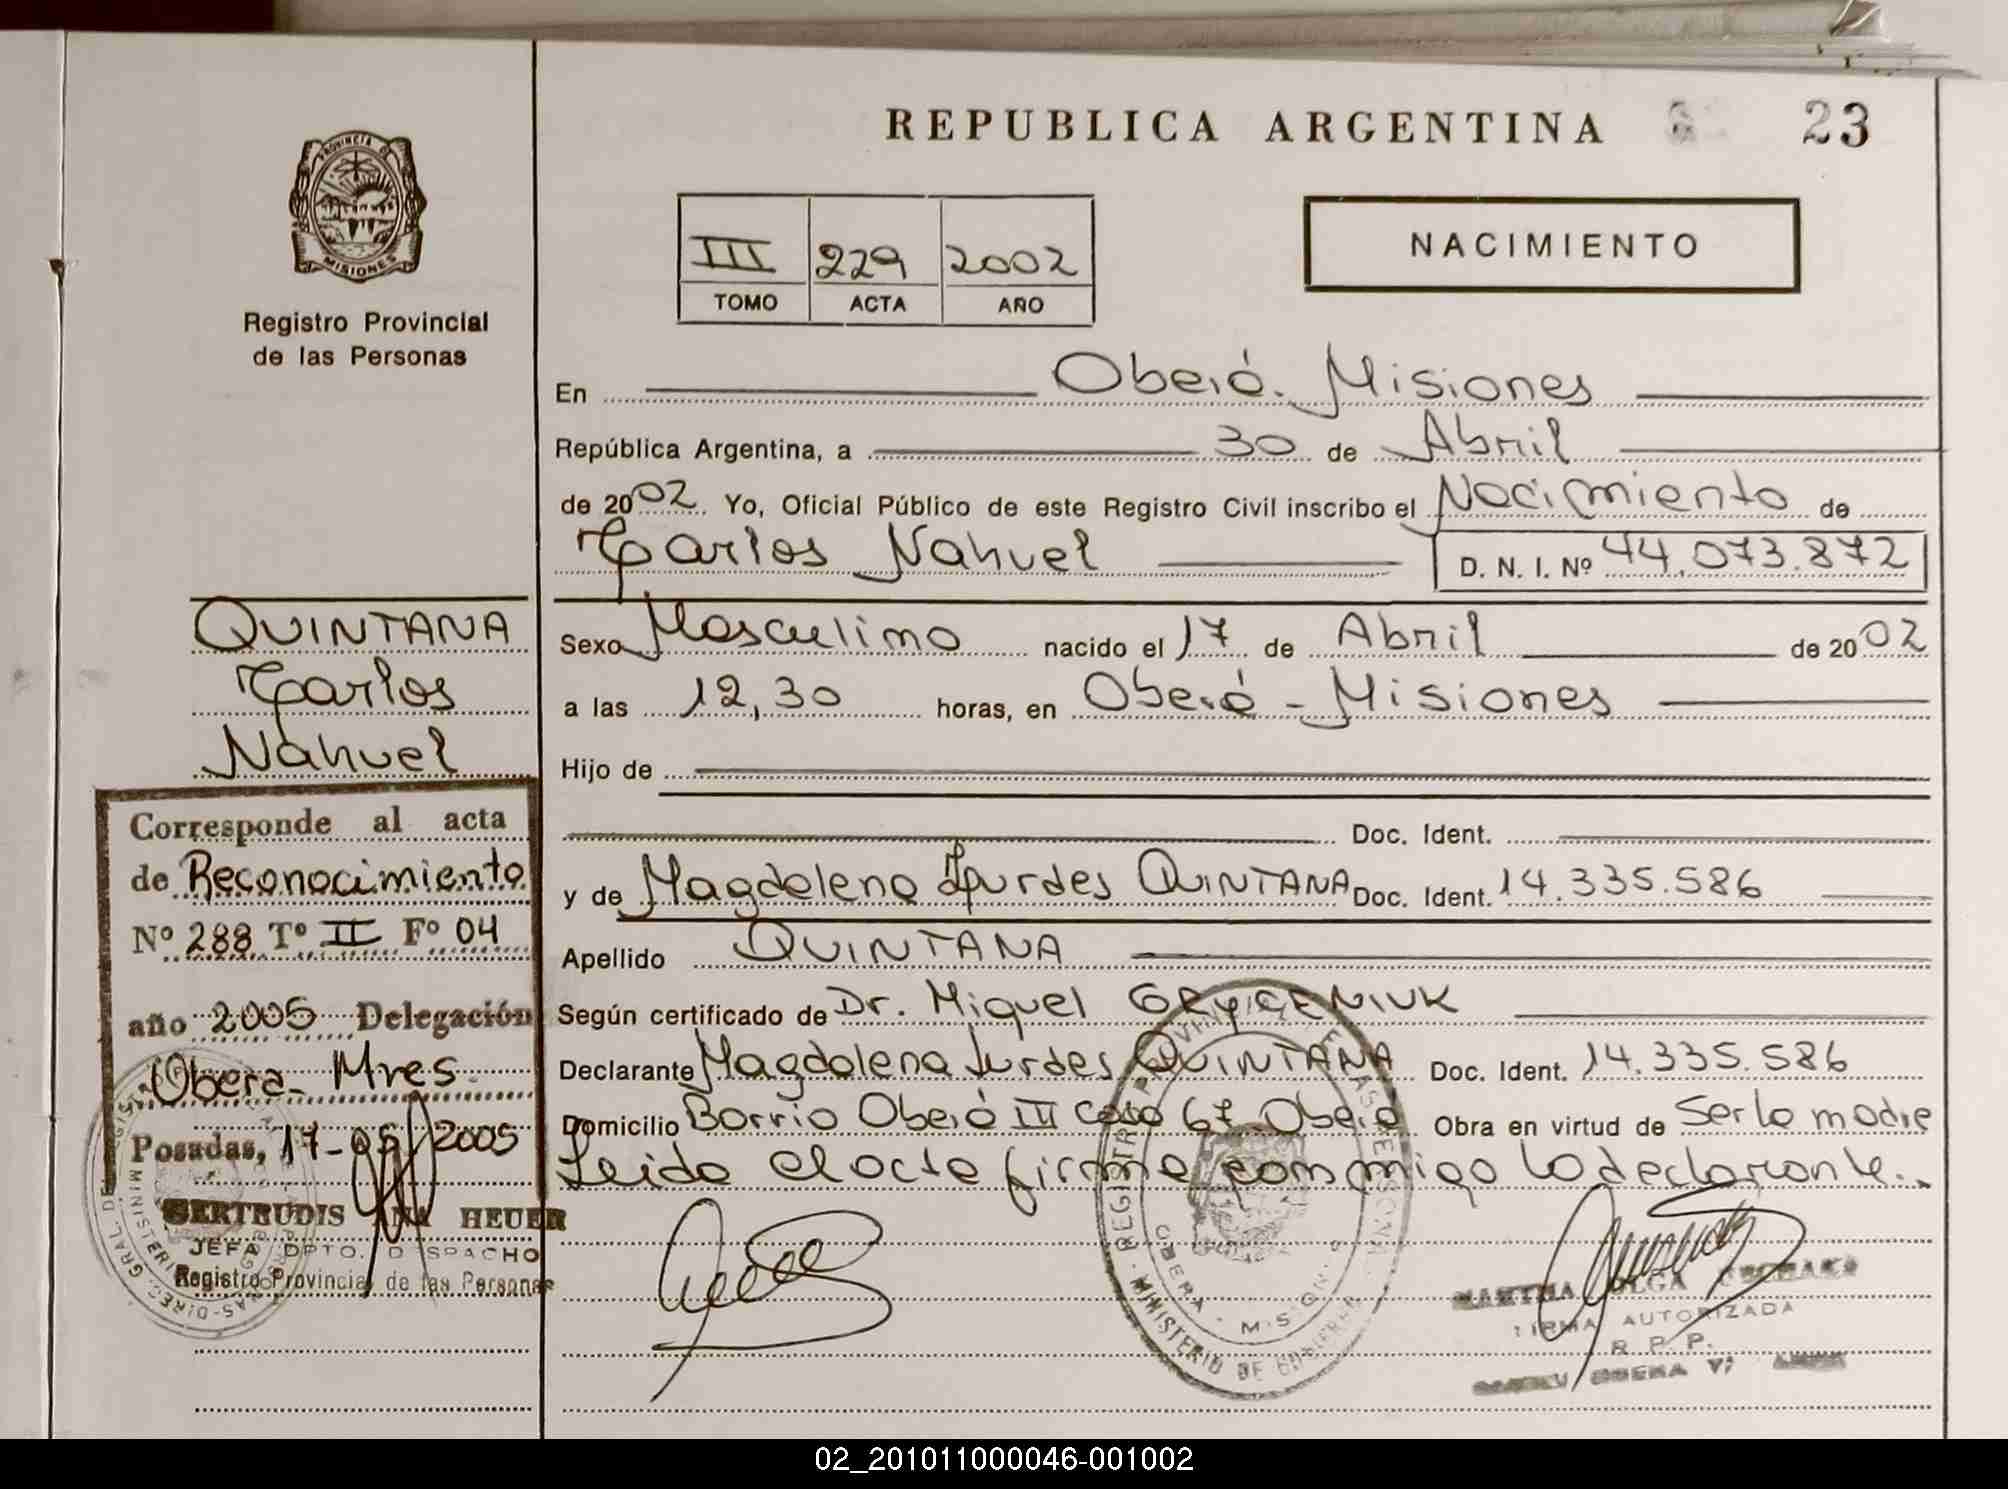 REPUBLICA ARGENTINA 23
PROVINCIA DE
MISIONES
Registro Provincial
de las Personas
III 229 2002
TOMO ACTA AÑO
NACIMIENTO
En Oberá. Misiones
República Argentina, a 30 de Abril
de 2002 Yo, Oficial Público de este Registro Civil inscribo el Nacimiento de
Carlos Nahuel D. N. I. Nº 44.073.872
QUINTANA
Carlos
Nahuel
Sexo Masculino nacido el 17 de Abril de 2002
a las 12,30 horas, en Oberá - Misiones
Hijo de
Doc. Ident.
y de Magdalena Lurdes QUINTANA Doc. Ident. 14.335.586
Apellido QUINTANA
Según certificado de Dr. Miguel GRYCENIUK
Declarante Magdalena Lurdes QUINTANA Doc. Ident. 14.335.586
Domicilio Barrio Oberá III Casa 67. Oberá Obra en virtud de Ser la madre
Leida el acta firma conmigo la declarante..
Corresponde al acta
de Reconocimiento
Nº 288 Tº II Fº 04
año 2005 Delegación
Obera - Mnes.
Posadas, 17-05-2005
GERTRUDIS ANA HEUER
JEFA DPTO. DESPACHO
Registro Provincial de las Personas
OBERA - MISIONES
MINISTERIO DE GOBIERNO
MARTHA OLGA
FIRMA AUTORIZADA
R. P. P.
02_201011000046-001002